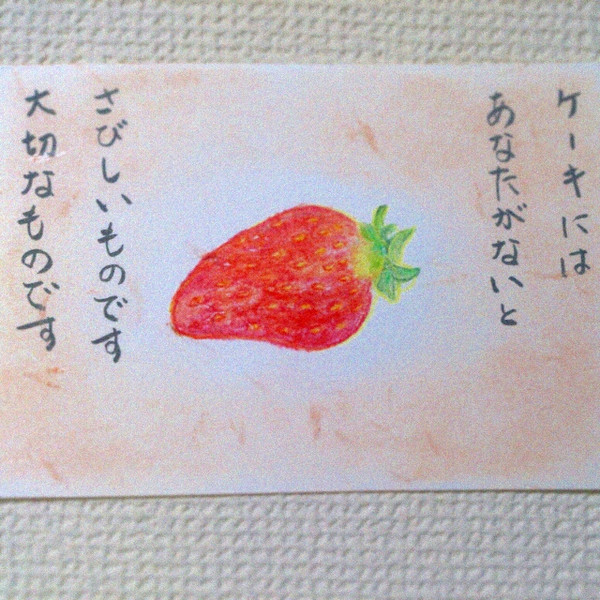 ケーキには
あなたがないと
さびしいものです
大切なものです